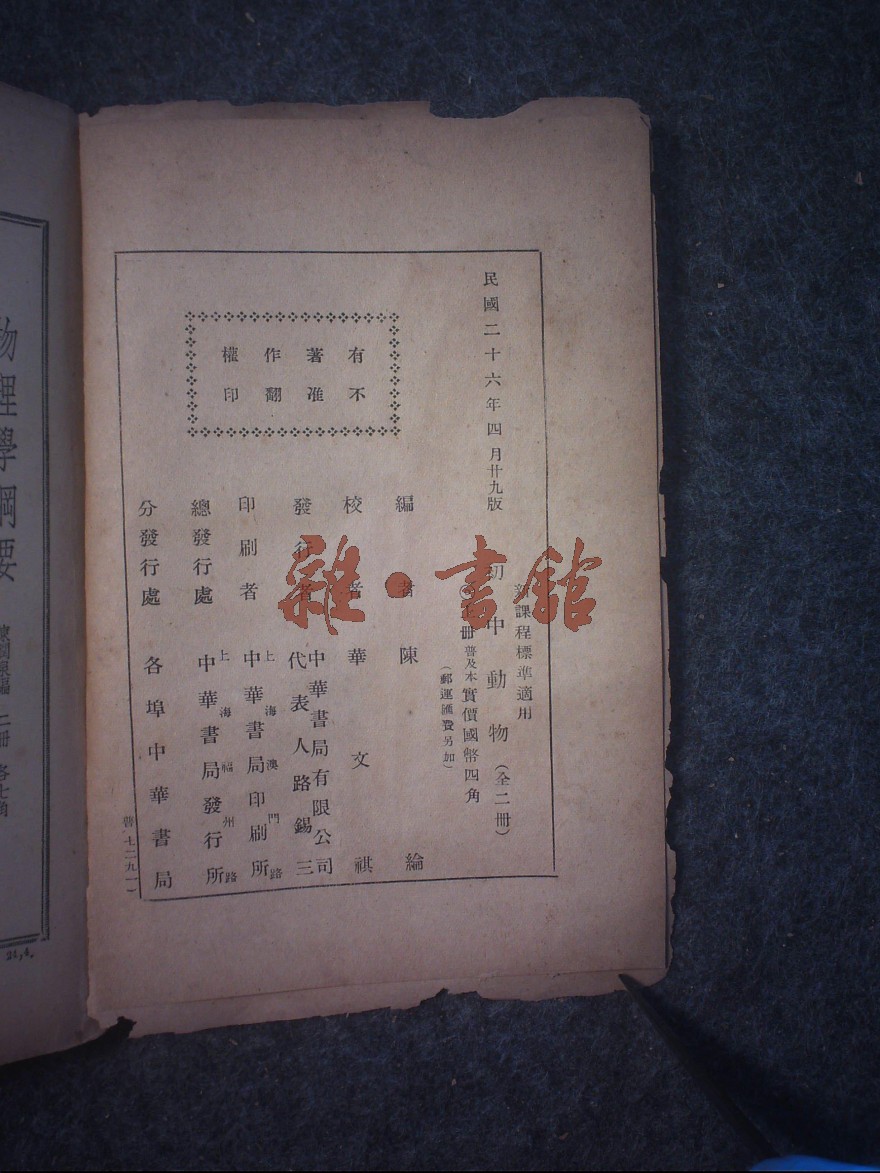 民國二十六年四月廿九版
新課程標準適用
初中動物（全二冊）
上冊普及本實價國幣四角
（郵運匯費另加）
有著作權
不准翻印
編者 陳綸
校者 華文祺
發行者 中華書局有限公司
代表人路錫三
印刷者 上海澳門路
中華書局印刷所
總發行處 上海福州路
中華書局發行所
分發行處 各埠中華書局
物理學綱要
二冊 各七角
21,4.
雜·書館